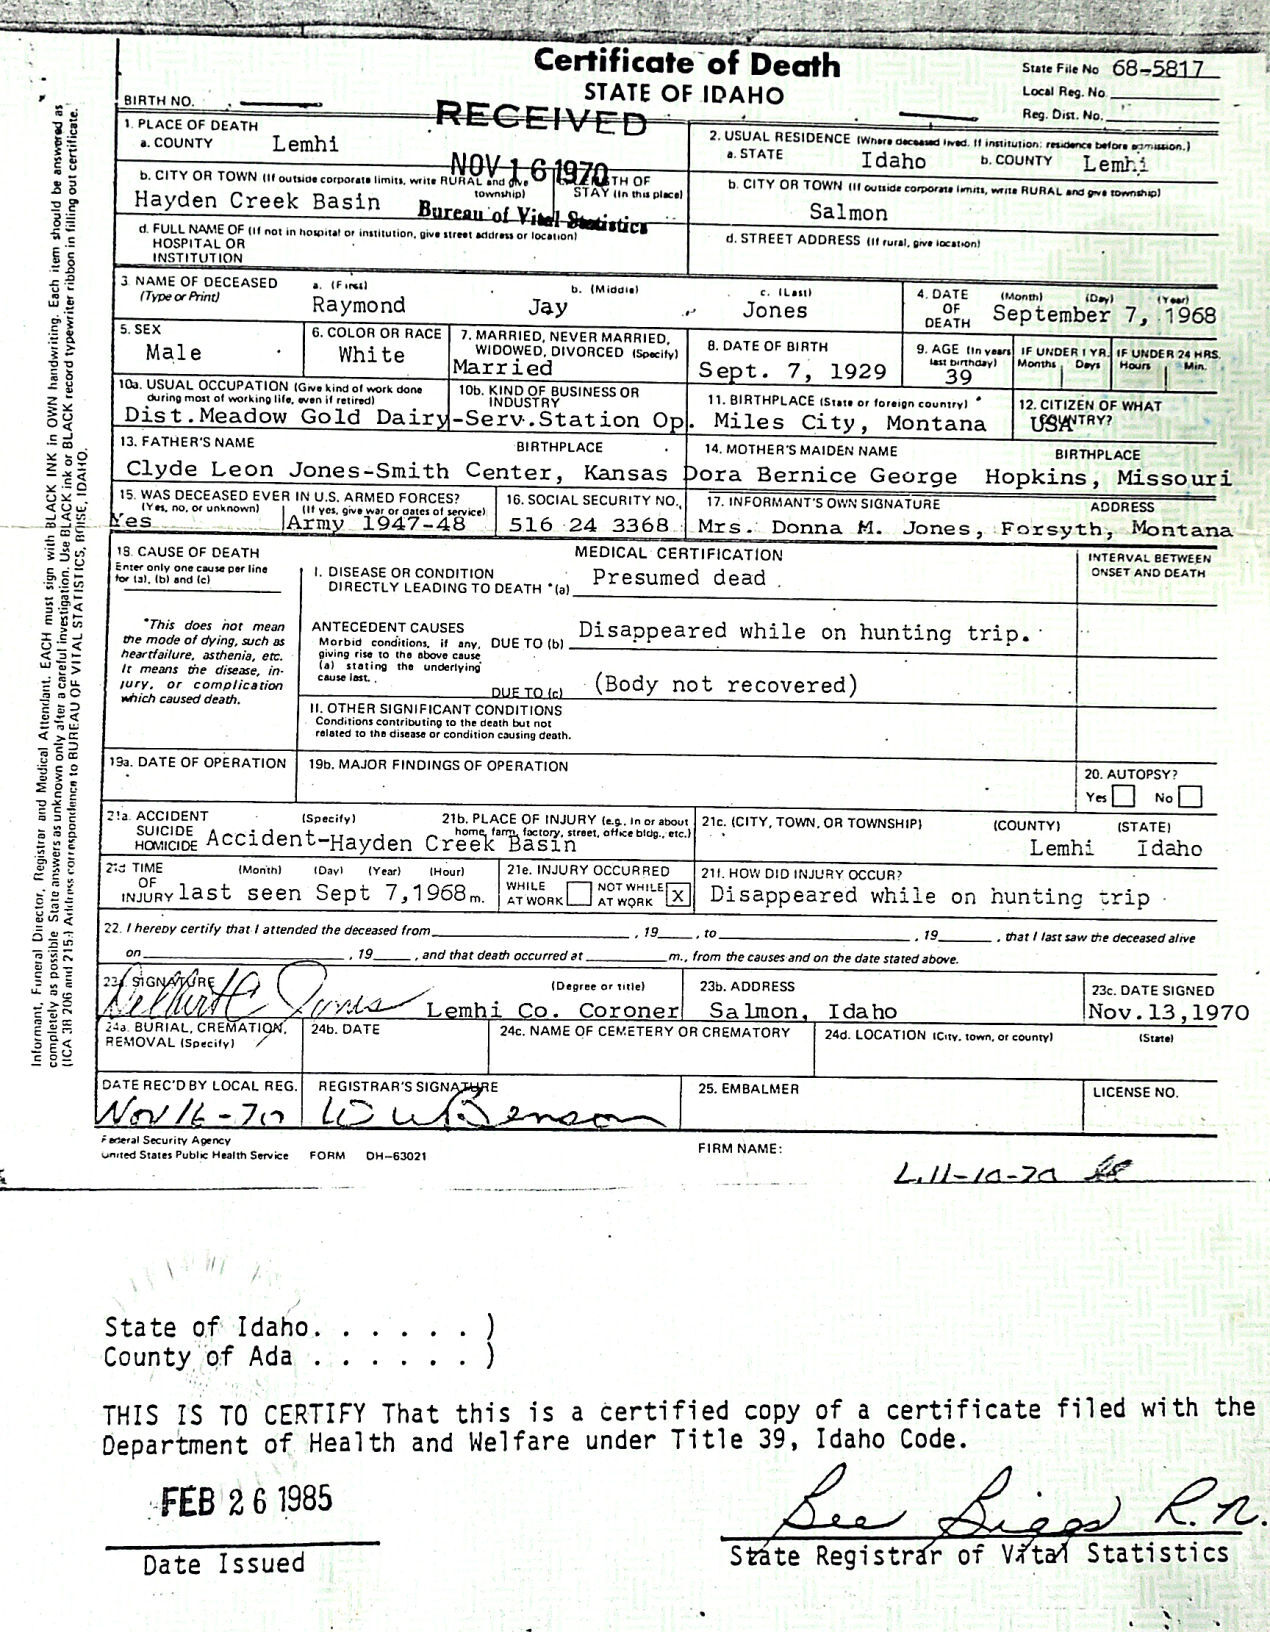 Certificate of Death
STATE OF IDAHO
State File No 68-5817
Local Reg. No.
Reg. Dist. No.
BIRTH NO.
RECEIVED
NOV 16 1970
Bureau of Vital Statistics
1. PLACE OF DEATH
a. COUNTY Lemhi
2. USUAL RESIDENCE (Where deceased lived. If institution: residence before admission.)
a. STATE Idaho b. COUNTY Lemhi
b. CITY OR TOWN (If outside corporate limits, write RURAL and give township)
Hayden Creek Basin
STAY (In this place)
b. CITY OR TOWN (If outside corporate limits, write RURAL and give township)
Salmon
d. FULL NAME OF (If not in hospital or institution, give street address or location)
HOSPITAL OR
INSTITUTION
d. STREET ADDRESS (If rural, give location)
3. NAME OF DECEASED
(Type or Print)
a. (First) b. (Middle) c. (Last)
Raymond Jay Jones
4. DATE OF DEATH (Month) (Day) (Year)
September 7, 1968
5. SEX
Male
6. COLOR OR RACE
White
7. MARRIED, NEVER MARRIED, WIDOWED, DIVORCED (Specify)
Married
8. DATE OF BIRTH
Sept. 7, 1929
9. AGE (In years last birthday)
39
IF UNDER 1 YR.
Months Days
IF UNDER 24 HRS.
Hours Min.
10a. USUAL OCCUPATION (Give kind of work done
during most of working life, even if retired)
10b. KIND OF BUSINESS OR INDUSTRY
Dist.Meadow Gold Dairy-Serv.Station Op.
11. BIRTHPLACE (State or foreign country)
Miles City, Montana
12. CITIZEN OF WHAT COUNTRY?
USA
13. FATHER'S NAME BIRTHPLACE
Clyde Leon Jones-Smith Center, Kansas
14. MOTHER'S MAIDEN NAME BIRTHPLACE
Dora Bernice George Hopkins, Missouri
15. WAS DECEASED EVER IN U.S. ARMED FORCES?
(Yes, no, or unknown) (If yes, give war or dates of service)
Yes Army 1947-48
16. SOCIAL SECURITY NO.
516 24 3368
17. INFORMANT'S OWN SIGNATURE ADDRESS
Mrs. Donna M. Jones, Forsyth, Montana
18. CAUSE OF DEATH
Enter only one cause per line
for (a), (b) and (c)
*This does not mean
the mode of dying, such as
heartfailure, asthenia, etc.
It means the disease, in-
jury, or complication
which caused death.
MEDICAL CERTIFICATION
INTERVAL BETWEEN
ONSET AND DEATH
I. DISEASE OR CONDITION
DIRECTLY LEADING TO DEATH *(a) Presumed dead
ANTECEDENT CAUSES
Morbid conditions, if any,
giving rise to the above cause
(a) stating the underlying
cause last.
DUE TO (b) Disappeared while on hunting trip.
DUE TO (c) (Body not recovered)
II. OTHER SIGNIFICANT CONDITIONS
Conditions contributing to the death but not
related to the disease or condition causing death.
19a. DATE OF OPERATION
19b. MAJOR FINDINGS OF OPERATION
20. AUTOPSY?
Yes No
21a. ACCIDENT (Specify)
SUICIDE
HOMICIDE
21b. PLACE OF INJURY (e.g., in or about
home, farm, factory, street, office bldg., etc.)
Accident-Hayden Creek Basin
21c. (CITY, TOWN, OR TOWNSHIP) (COUNTY) (STATE)
Lemhi Idaho
21d TIME OF INJURY (Month) (Day) (Year) (Hour)
last seen Sept 7,1968 m.
21e. INJURY OCCURRED
WHILE AT WORK NOT WHILE AT WORK X
21f. HOW DID INJURY OCCUR?
Disappeared while on hunting trip
22. I hereby certify that I attended the deceased from , 19 , to , 19 , that I last saw the deceased alive
on , 19 , and that death occurred at m., from the causes and on the date stated above.
23a. SIGNATURE (Degree or title)
Delbert C Jones Lemhi Co. Coroner
23b. ADDRESS
Salmon, Idaho
23c. DATE SIGNED
Nov.13,1970
24a. BURIAL, CREMATION,
REMOVAL (Specify)
24b. DATE
24c. NAME OF CEMETERY OR CREMATORY
24d. LOCATION (City, town, or county) (State)
DATE REC'D BY LOCAL REG.
Nov 16-70
REGISTRAR'S SIGNATURE
W W Benson
25. EMBALMER
LICENSE NO.
Federal Security Agency
United States Public Health Service FORM DH-63021
FIRM NAME:
Informant, Funeral Director, Registrar and Medical Attendant, EACH must sign with BLACK INK in OWN handwriting. Each item should be answered as
completely as possible State answers as unknown only after a careful investigation. Use BLACK ink or BLACK record typewriter ribbon in filling out certificate.
(ICA 38 206 and 215.) Address correspondence to BUREAU OF VITAL STATISTICS, BOISE, IDAHO.
State of Idaho. . . . . . )
County of Ada . . . . . . )
THIS IS TO CERTIFY That this is a certified copy of a certificate filed with the
Department of Health and Welfare under Title 39, Idaho Code.
FEB 26 1985
Date Issued
Bee Biggs R.N.
State Registrar of Vital Statistics